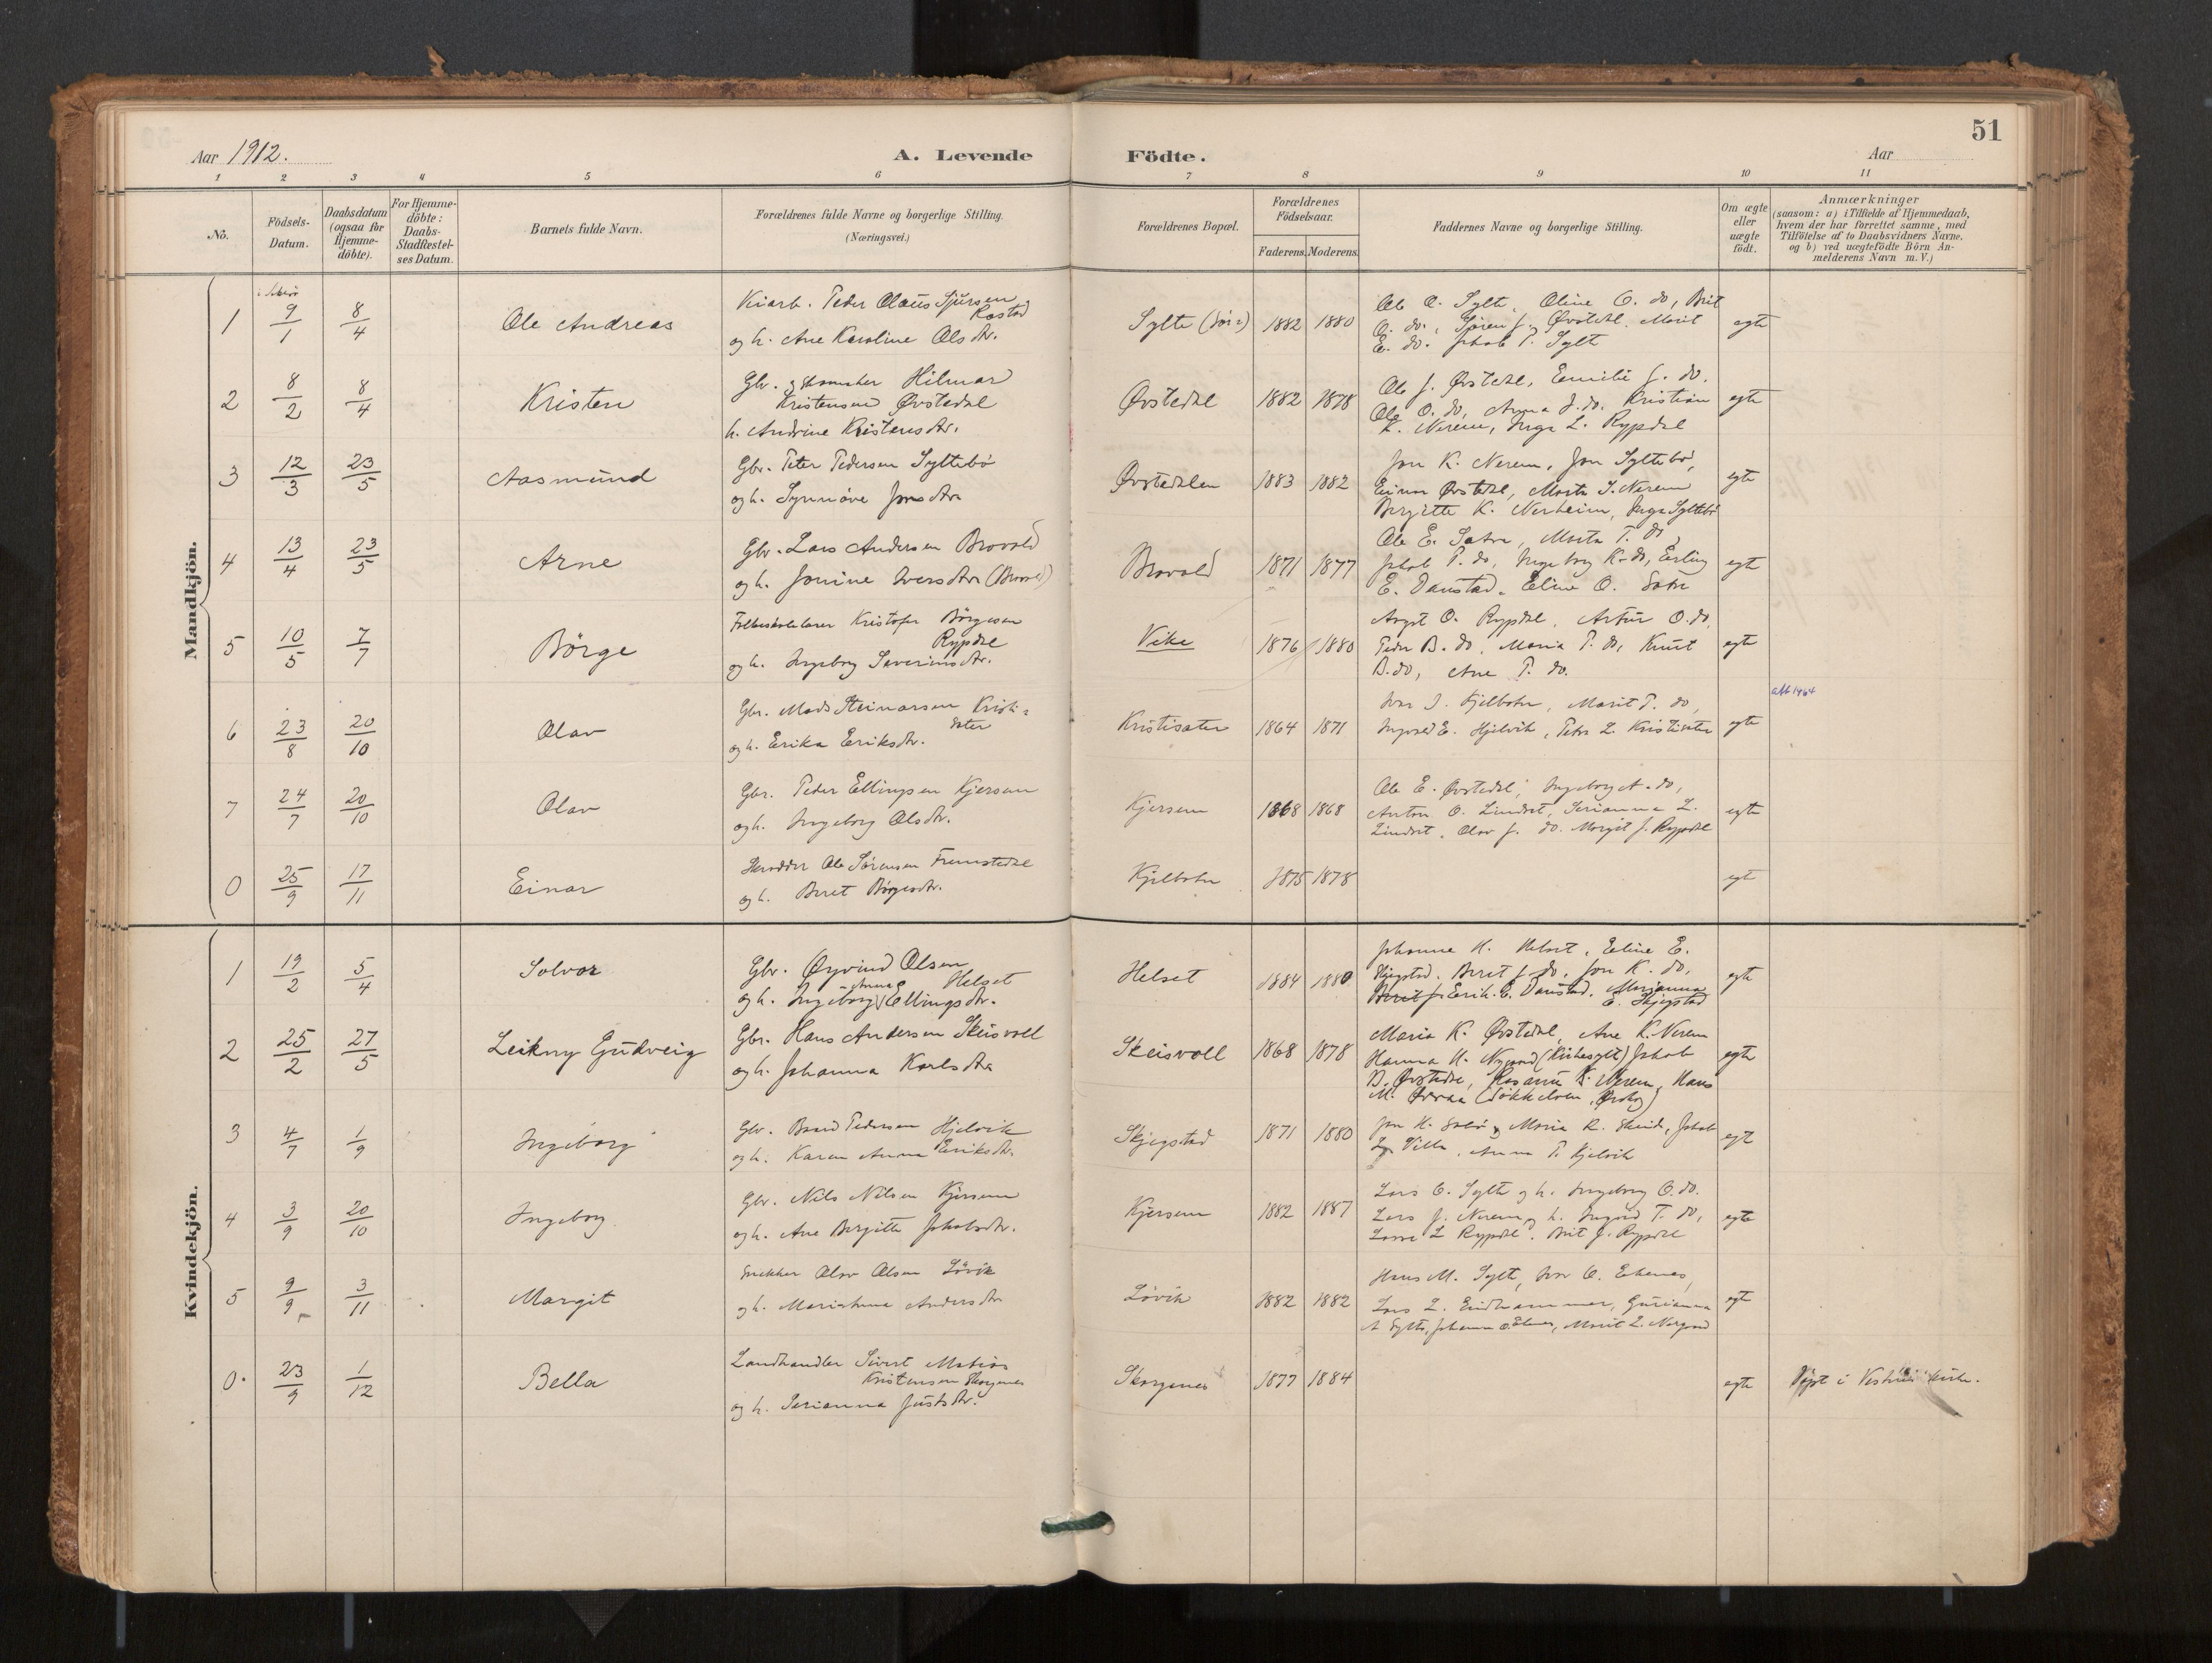 51
Aar 1912.
A. Levende
Födte.
Aar
1 2 3 4 5 6 7 8 9 10 11
No.
Födsels-
Datum.
Daabsdatum
(ogsaa for
Hjemme-
döbte).
For Hjemme-
döbte:
Daabs-
Stadfæstel-
ses Datum.
Barnets fulde Navn.
Forældrenes fulde Navne og borgerlige Stilling.
(Næringsvei.)
Forældrenes Bopæl.
Forældrenes
Födselsaar.
Faderens. Moderens.
Faddernes Navne og borgerlige Stilling.
Om ægte
eller
uægte
födt.
Anmærkninger
(saasom: a) i Tilfælde af Hjemmedaab,
hvem der har forrettet samme, med
Tilföielse af to Daabsvidners Navne,
og b) ved uægtefödte Börn An-
melderens Navn m. V.)
Mandkjön.
1 9/1 8/4 Ole Andreas
Peder Olaus Sjursen
og h. Ane Karoline Olsdtr.
Sylte 1882 1880
Ole O. Sylte, Oline O. do, Brit
O. do, Søren J. Øvstedal. Marit
E. do. Jakob P. Sylte
egte
2 8/2 8/4 Kristen
Gbr. og Hilmar
Kristensen Øvstedal
h. Andrine Kristensdtr.
Øvstedal 1882 1878
Ole J. Øvstedal, Emilie J. do.
Ole O. do, Anna J. do. Kristian
K. Nerem, Inga L. Rypdal
egte
3 12/3 23/5 Aasmund
Gbr. Peter Pedersen Syltebö
og h. Synnöve Jonsdtr
Øvstedalen 1883 1882
Jon K. Nerem, Jon Syltebö,
Einar Øvstedal, Marta J. Nerem
Bergitte K. Nerheim, Inga Syltebö
egte
4 13/4 23/5 Arne
Gbr. Lars Andersen Brovold
og h. Jonine Iversdtr (Brovold)
Brovold 1871 1877
Ole E. Sætre, Marta T. do,
Jakob P. do, Ingeborg K. do, Erling
E. Daustad. Eline O. Sætre
egte
5 10/5 7/7 Börge
Folkeskolelærer Kristofer Börgesen
Rypdal
og h. Ingeborg Severinsdtr.
Vike 1876 1880
August O. Rypdal, Artur O. do,
Peder B. do, Maria P. do, Knut
B. do, Ane P. do.
egte
6 23/8 20/10 Olav
Gbr. Mads Steinarsen Kristi-
sæter
og h. Erika Eriksdtr.
Kristisæter 1864 1871
Ivar J. Kjelbotn, Marit P. do,
Ingvald E. Hjelvik, Petra L. Kristisæter
egte
7 24/7 20/10 Olav
Gbr. Peder Ellingsen Kjersem
og h. Ingeborg Olsdtr.
Kjersem 1868 1868
Ole E. Øvstedal, Ingeborg A. do,
Anton O. Lindset, Serianna L.
Lindset, Olav J. do. Margit J. Rypdal
egte
0 25/9 17/11 Einar
Ole Sørensen Fremstedal
og h. Beret Börgesdtr.
Kjelbotn 1875 1878
egte
Kvindekjön.
1 19/2 5/4 Solvor
Gbr. Øyvind Olsen
Helset
og h. Ingeborg Anna Ellingsdtr.
Helset 1884 1880
Johanne H. Helset, Eline E.
Skjegstad. Berit J. do. Jon K. do,
Berit J. Erik E. Daustad. Marianna
E. Skjegstad
egte
2 25/2 27/5 Leikny Gudveig
Gbr. Hans Andersen Skeisvoll
og h. Johanna Karlsdtr
Skeisvoll 1868 1878
Maria K. Øvstedal, Ane K. Nerem
Hanna H. (Kirkesylt) Jakob
B. Øvstedal, K. Nerem, Hans
M.
egte
3 4/7 1/9 Ingeborg
Gbr. Baard Pedersen Hjelvik
og h. Karen Anna Eriksdtr.
Skjegstad 1871 1880
Jon H. og Maria R. Jakob
Villa, Anna P. Hjelvik
egt
4 3/9 20/10 Ingeborg
Gbr. Nils Nilsen Kjersem
og h. Ane Bergitta Jakobsdtr.
Kjersem 1882 1887
Lars O. Sylte og h. Ingeborg O. do.
Lars J. Nerem og h. Ingrid T. do,
L. Rypdal. Brit J. Rypdal
egte
5 9/9 3/11 Margit
Snekker Olav Olsen Lövik
og h. Marianna Andersdtr
Lövik 1882 1882
Hans M. Sylte, Ivar O. Ekenes,
Lars L. Eidhammer, Gurianna
A. Sylte, Johanna O. Ekenes, Marit L. Norgaard
egt
0 23/9 1/12 Bella
Landhandler Sivert Matias
Kristensen Skorgenes
og h. Serianna Justsdtr.
Skorgenes 1877 1884
egte
Döpt i Vestnes kirke.